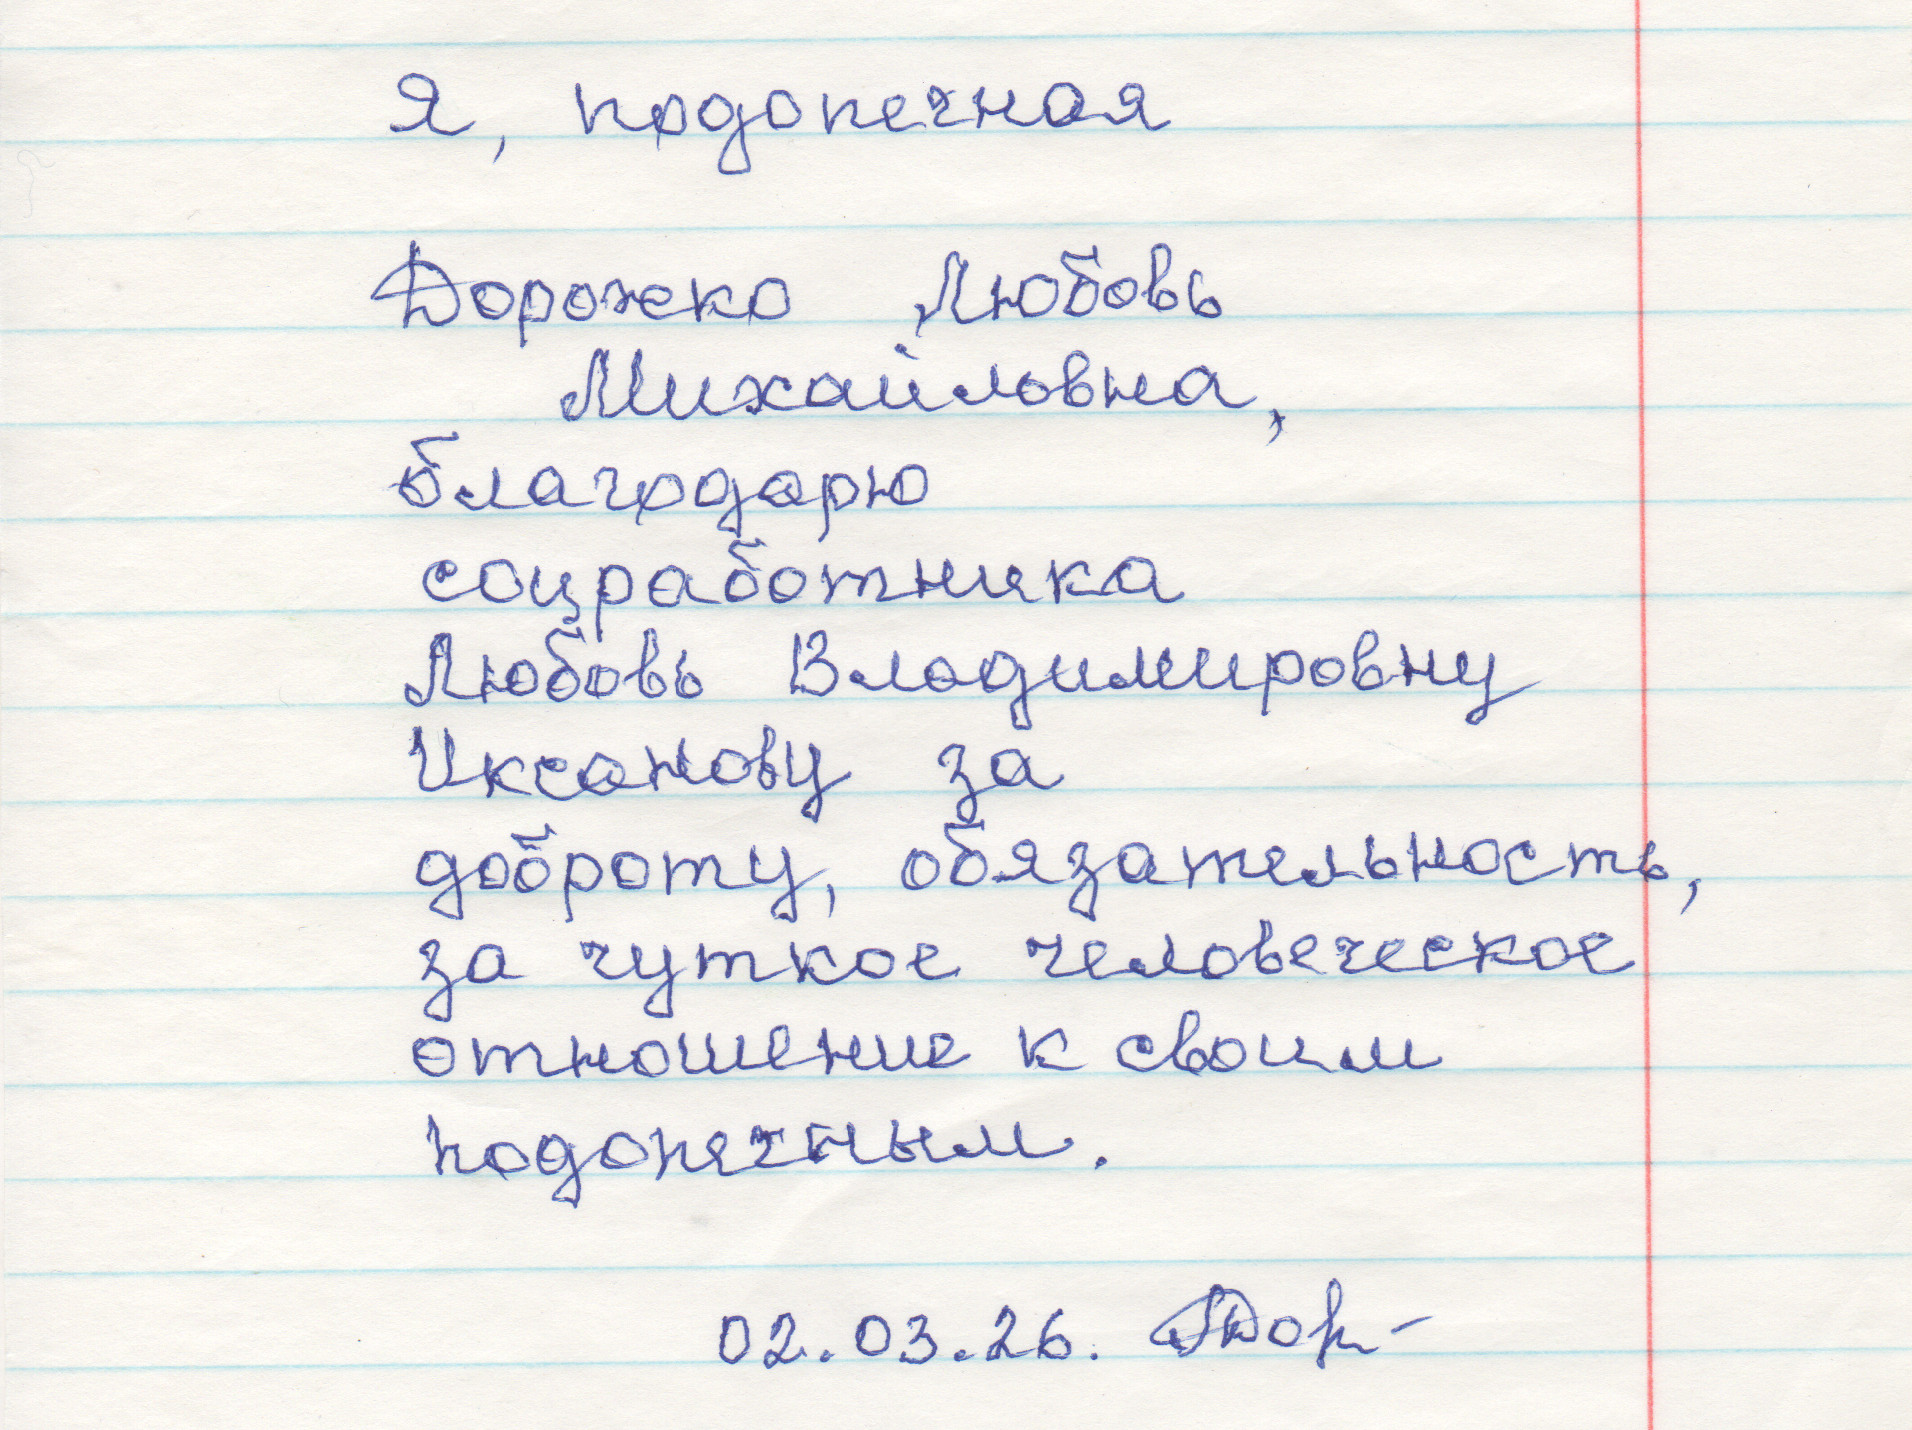 Я, подопечная
Дорожко Любовь
Михайловна,
благодарю
соцработника
Любовь Владимировну
Иксанову за
доброту, обязательность,
за чуткое человеческое
отношение к своим
подопечным.
02.03.26. Дор-